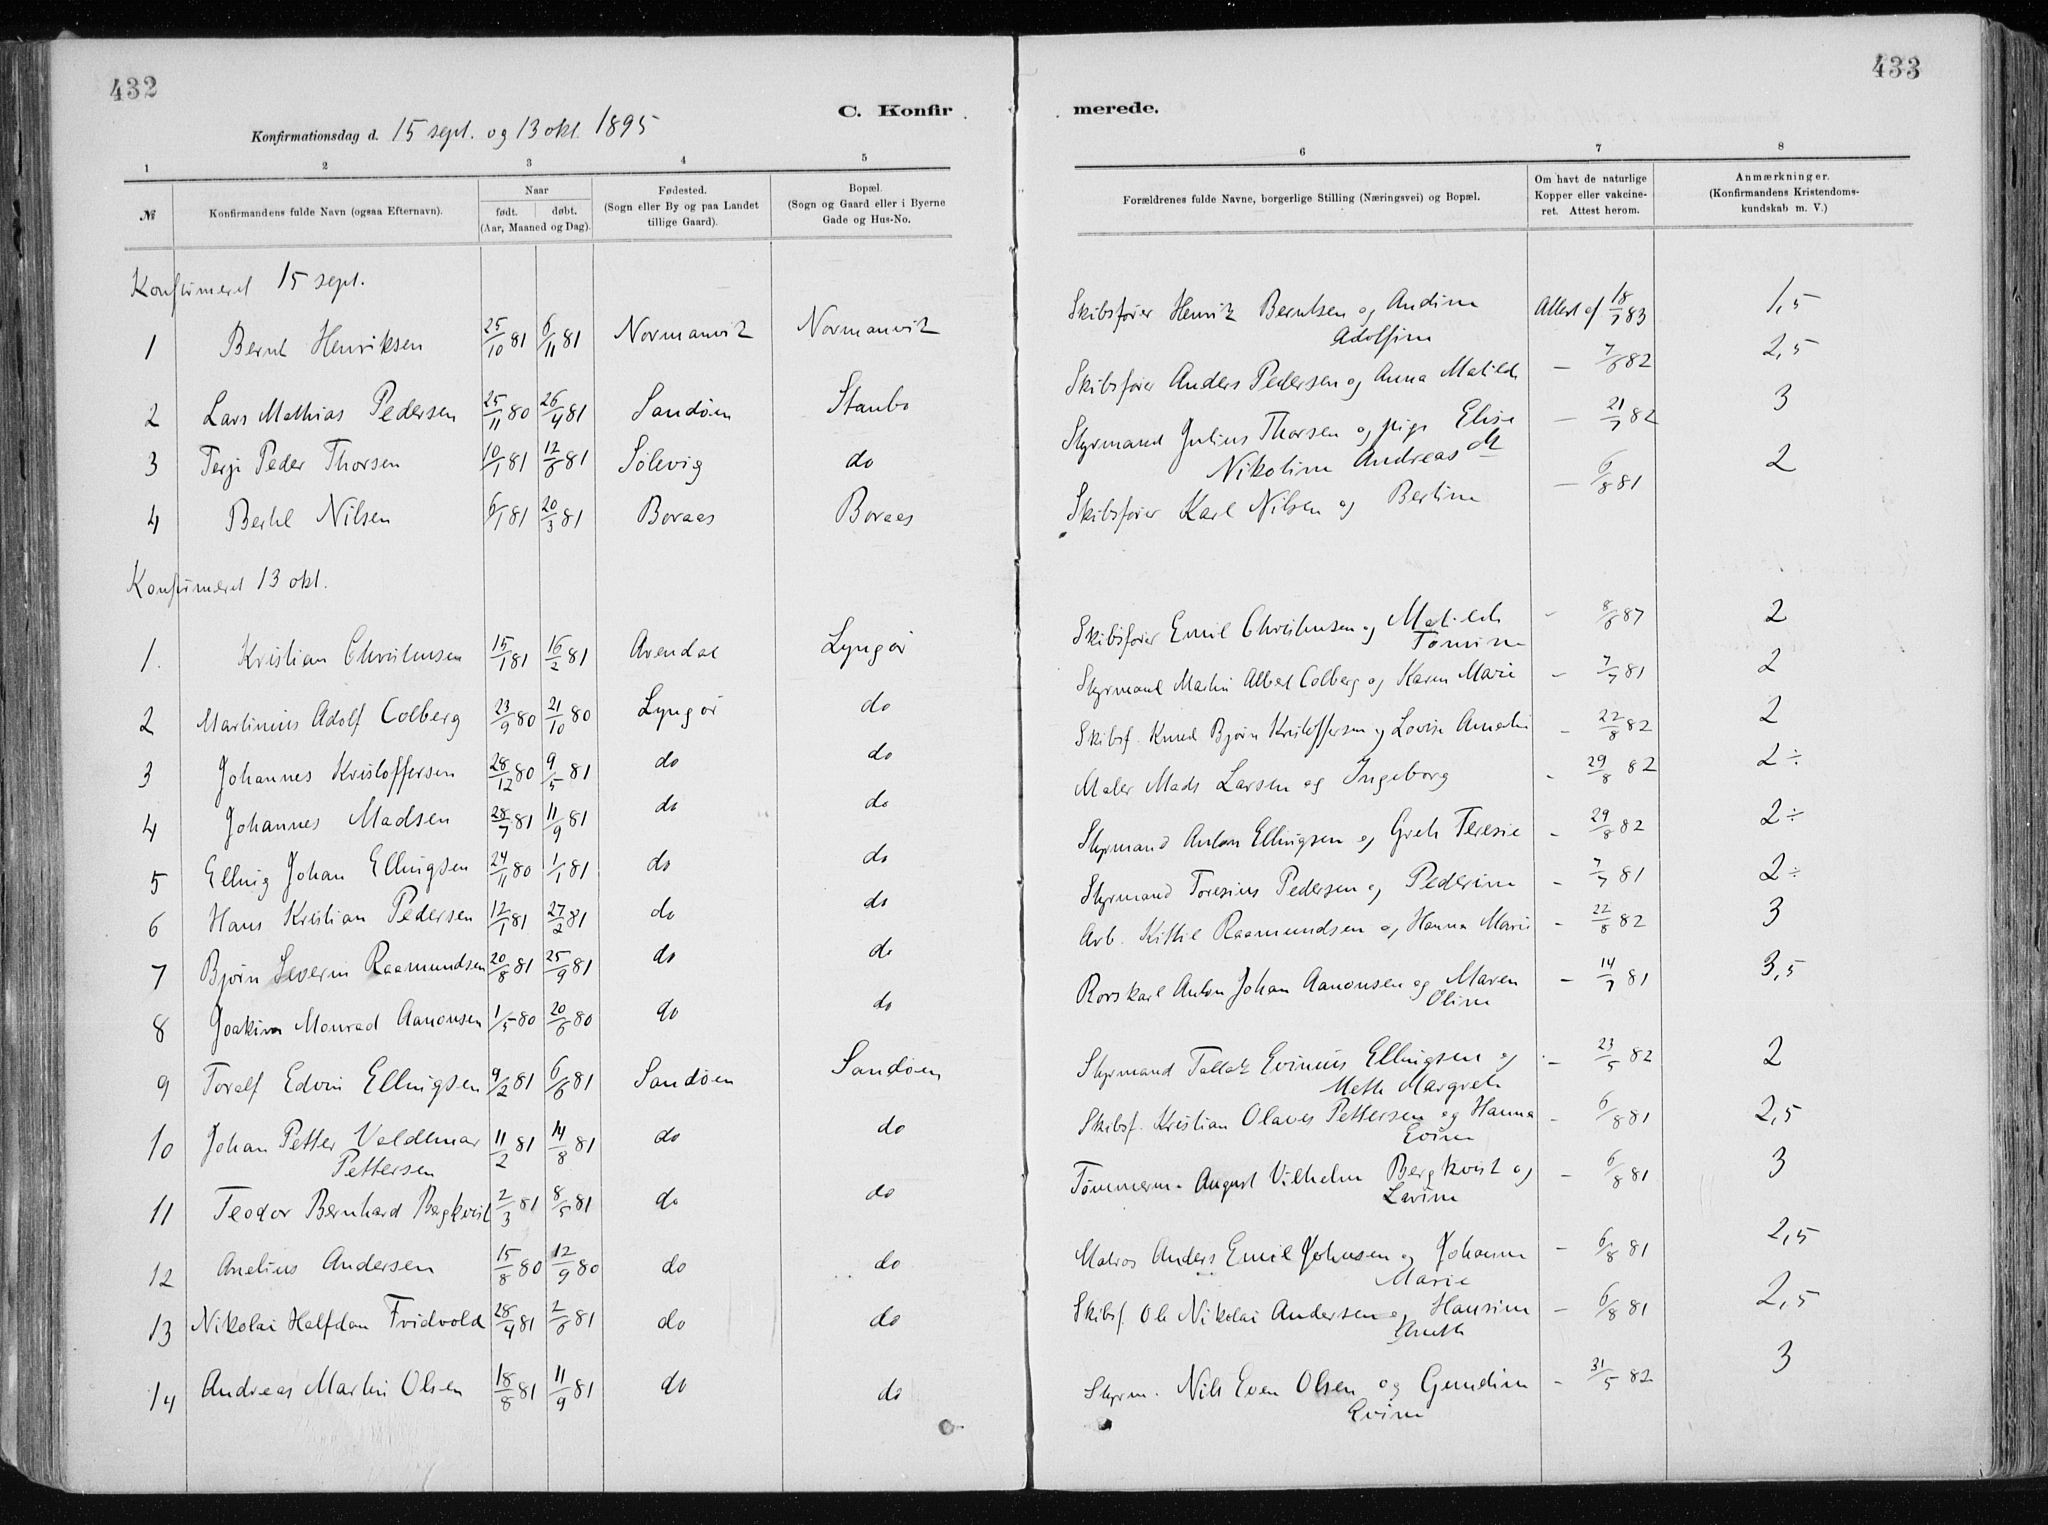 432
433
C. Konfir
merede.
Konfirmationsdag d. 15 sept. og 13 okt. 1895
1 2 3 4 5
6 7 8
№
Konfirmandens fulde Navn (ogsaa Efternavn).
Naar
født. døbt.
(Aar, Maaned og Dag).
Fødested.
(Sogn eller By og paa Landet
tillige Gaard).
Bopæl.
(Sogn og Gaard eller i Byerne
Gade og Hus-No.
Forældrenes fulde Navne, borgerlige Stilling (Næringsvei) og Bopæl.
Om havt de naturlige
Kopper eller vakcine-
ret. Attest herom.
Anmærkninger.
(Konfirmandens Kristendoms-
kundskab m. V.)
Konfirmeret 15 sept.
1 Bernt Henriksen 25/10 81 6/11 81 Normanvik Normanvik Skibsfører Henrik Berntsen og Andine Attest af 18/7 83 1,5
Adolfine
2 Lars Mathias Pedersen 25/11 80 26/4 81 Sandøen Stanbo Skibsfører Anders Pedersen og Anna Matilde – 7/6 82 2,5
3 Terje Peder Thorsen 10/1 81 12/6 81 Sølevig do Styrmand Julius Thorsen og pige Elise – 21/7 82 3
Nikoline Andreasdt
4 Bertel Nilsen 6/1 81 20/3 81 Boraas Boraas Skibsfører Karl Nilsen og Bertine – 6/8 81 2
Konfirmeret 13 okt.
1. Kristian Christensen 15/1 81 16/2 81 Arendal Lyngør Skibsfører Emil Christensen og Matilde – 8/6 87 2
Tomine
2 Martinius Adolf Colberg 23/9 80 21/10 80 Lyngør do Styrmand Martin Albert Colberg og Karen Marie – 7/7 81 2
3 Johannes Kristoffersen 28/12 80 9/5 81 do do Skibsf. Knud Bjørn Kristoffersen og Lovise Amalie – 22/8 82 2
4 Johannes Madsen 28/7 81 11/9 81 do do Maler Mads Larsen og Ingeborg - 29/8 82 2÷
5 Elling Johan Ellingsen 24/11 80 1/1 81 do do Styrmand Anton Ellingsen og Grete Teresie – 29/8 82 2÷
6 Hans Kristian Pedersen 12/1 81 27/2 81 do do Styrmand Toresius Pedersen og Pederine – 7/7 81 2÷
7 Bjørn Severin Raamundsen 20/8 81 25/9 81 do do Arb. Kittil Raamundsen og Hanna Marie – 22/8 82 3
8 Joakim Monrad Aanonsen 1/5 80 20/6 80 do do Rorskarl Anton Johan Aanonsen og Maren – 14/7 81 3,5
Oline
9 Toralf Edvin Ellingsen 9/2 81 6/6 81 Sandøen Sandøen Styrmand Tallak Evinius Ellingsen og – 23/5 82 2
Mette Margrete
10 Johan Petter Valdemar 11/2 81 14/8 81 do do Skibsf. Kristian Olaves Pettersen og Hanna – 6/8 81 2,5
Pettersen Evine
11 Teodor Bernhard Bergkvist 2/3 81 8/5 81 do do Tømmerm. August Vilhelm Bergkvist og – 6/8 81 3
Lavine
12 Anelius Andersen 15/8 80 12/9 80 do do Matros Anders Emil Johnsen og Johanne – 6/8 81 2,5
Marie
13 Nikolai Halfdan Fridvold 28/4 81 2/6 81 do do Skibsf. Ole Nikolai Andersen og Hansine – 6/8 81 2,5
Anette
14 Andreas Martin Olsen 18/8 81 11/9 81 do do Styrm. Nils Even Olsen og Gundine – 31/5 82 3
Evine